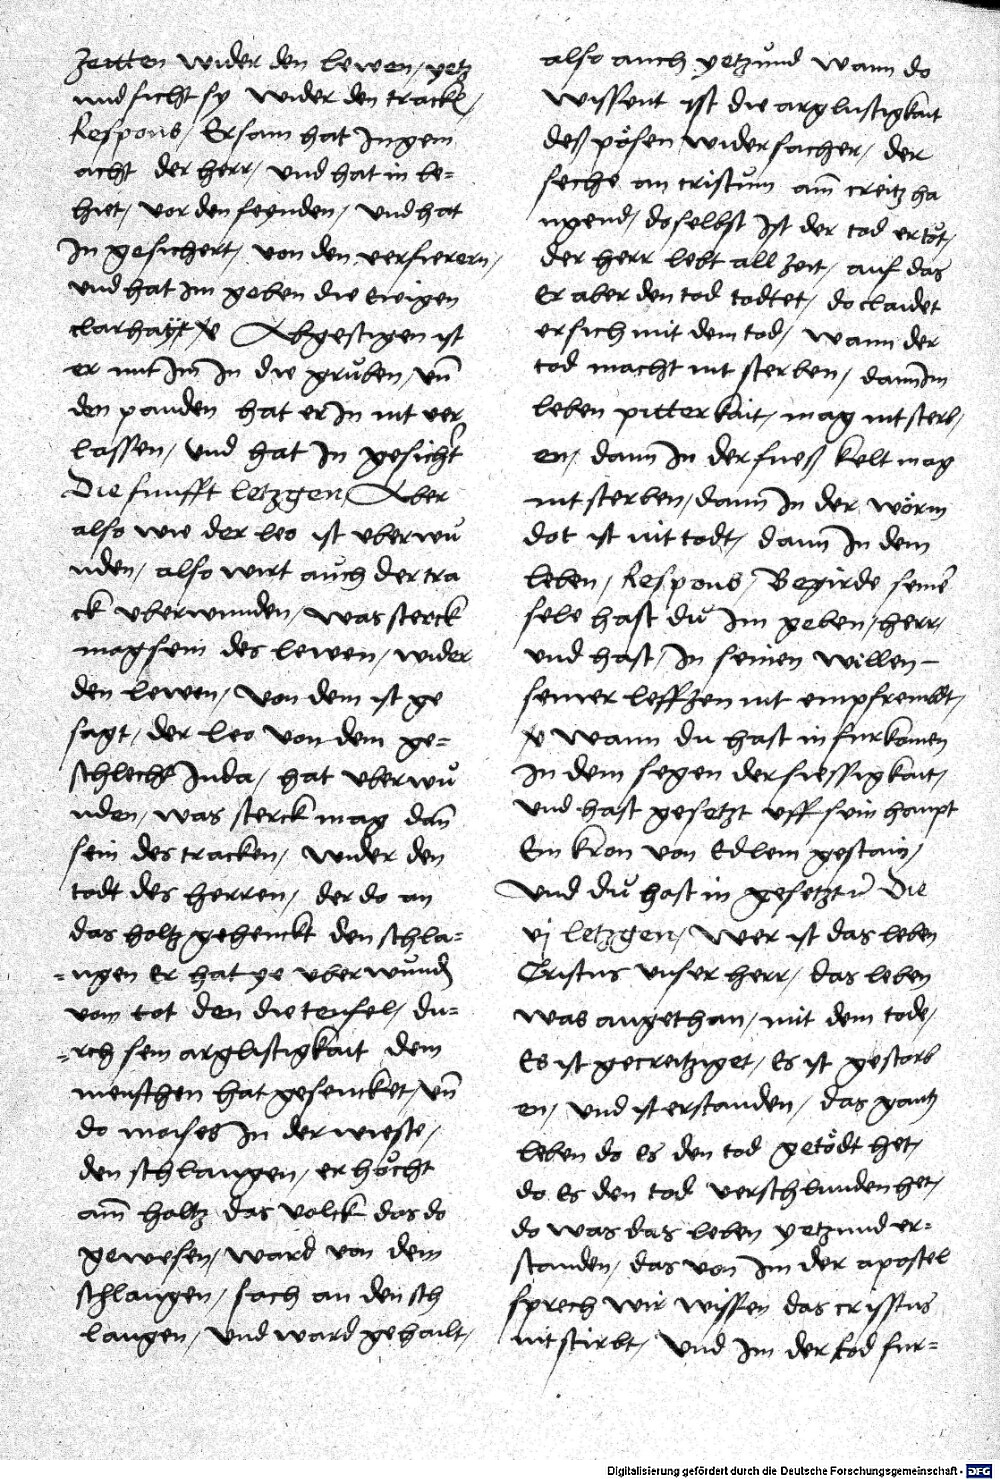 Zeitten wider den lewen, yetz
und ficht sy wider den track,
Respons, Ersam hat In gem
acht der herr, und hat in be-
hiet, vor den feynden, und hat
In gesichert, von den verfierern,
und hat im geben die ewigen
clarhayt, v Abgestigen ist
er mit Im In die gruben, uñ
den panden hat er In nit ver
lassen, und hat In gesichert
Die funfft letzgen, Aber
also wie der leo ist uberwu
nden, also wirt auch der tra
ck uberwunden, was sterck
mag sein des lewen, wider
den lewen, von dem ist ge
sagt, der leo von dem ge-
schlecht Juda, hat uberwu
nden, was sterck mag dañ
sein des tracken, wider den
todt des herren, der do an
das holtz gehenckt den schla-
-ngen er hat ye uberwund
vom tot den die teufel, du-
-rch sein arglistigkait dem
menschen hat gesencket, uñ
do moises In der wieste,
den schlangen, erhöcht
am̃ holtz das volck das do
gewesen, ward von dem
schlangen, sach an den sch
langen, und ward gehailt,
also auch yetzund wann do
wissent ist die arglustigkait
deß pösen widersacher, der
seche an cristum am̃ creitz ha
ngend, doselbst ist der tod ertöt,
der herr lebt all Zeit, auf das
Er aber den tod todtet, do claidet
er sich mit dem tod, wann der
tod macht nit sterben, dann Im
leben pitterkait, mag nit sterb,
en, dann In der sueß kelt mag
nit sterben, dann In der wörm
dot ist nit todt, dann In dem
leben, Respons, Begirde seine
sele hast du Im geben, herr,
und hast, In seinen willen -
seiner leffzen nit empfremdt,
v wann du hast in furkomen
In dem segen der siessigkait,
und hast gesetzt uff sein haupt
Ein kron von Edlem gestain,
und du hast in gesetzt Die
vj letzgen, Wer ist das leben
Cristus unser herr, das leben
was angethan, mit dem tode,
Es ist gecreitziget, Es ist gestorb
en, und ist erstanden, das gantz
leben do es den tod getödt het,
do Es den tod verschlunden het,
do was das leben yetzund er-
standen, das von Im der apostel
sprech wir wissen das cristus
nit stirbt, und Im der tod fur-
Digitalisierung gefördert durch die Deutsche Forschungsgemeinschaft - DFG